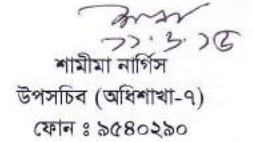 ১১.৬.১৫
শামীমা নার্গিস
উপসচিব (অধিশাখা-৭)
ফোন ঃ ৯৫৪০২৯০